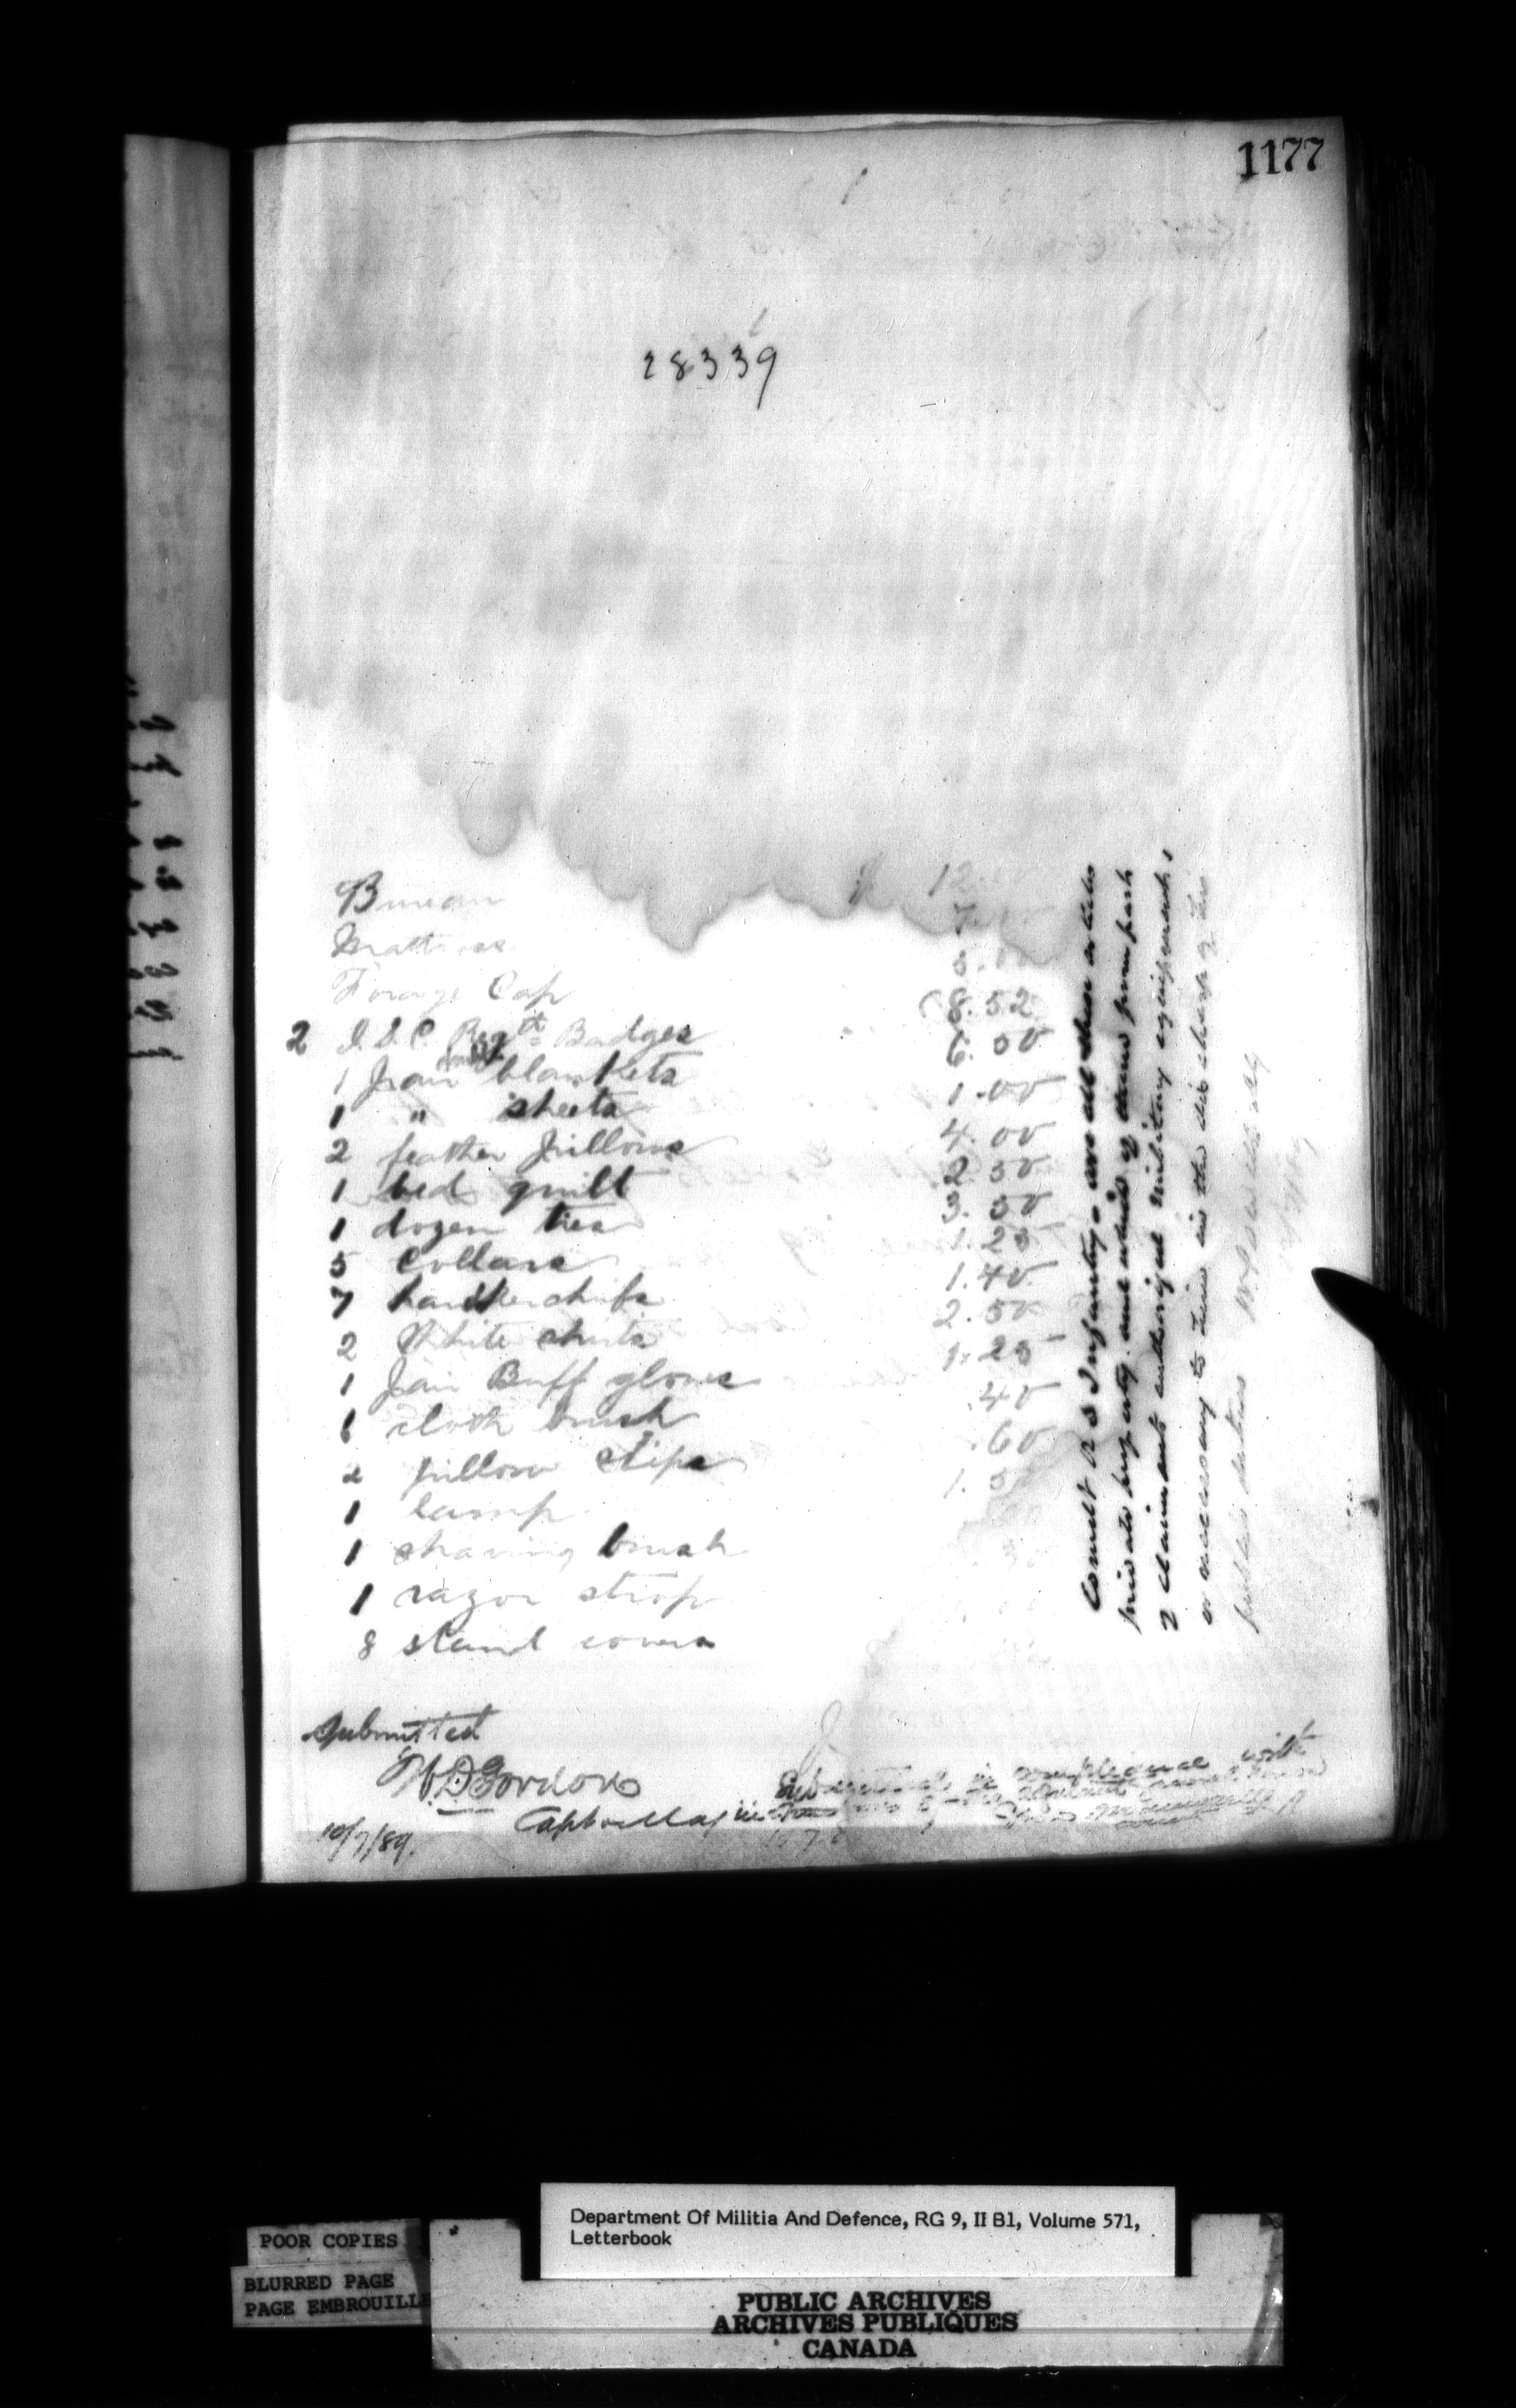 1177
28339
Bureau 12.
Mattress 7.
Forage Cap 5.00
2 I.S.C. Regtl Badges 8.52
1 pair blankets 6.50
1 " sheets 1.00
2 feather pillows 4.00
1 bed quilt 2.50
1 dozen ties 3.50
5 Collars 1.25
7 handkerchifs 1.40
2 White shirts 2.50
1 pair Buff gloves 1.25
1 cloth brush .40
2 pillow slips .60
1 lamp 1.5
1 shaving brush
1 razor strop
8 stand covers
Submitted
W.D. Gordon
10/7/89.
Submitted in compliance with
Infantry - are all these articles
private property and which of them form part
of claimants authorized military equipment,
or necessary to him in the discharge of his
public duties
Department Of Militia And Defence, RG 9, II B1, Volume 571,
Letterbook
POOR COPIES
BLURRED PAGE
PAGE EMBROUILLE
PUBLIC ARCHIVES
ARCHIVES PUBLIQUES
CANADA